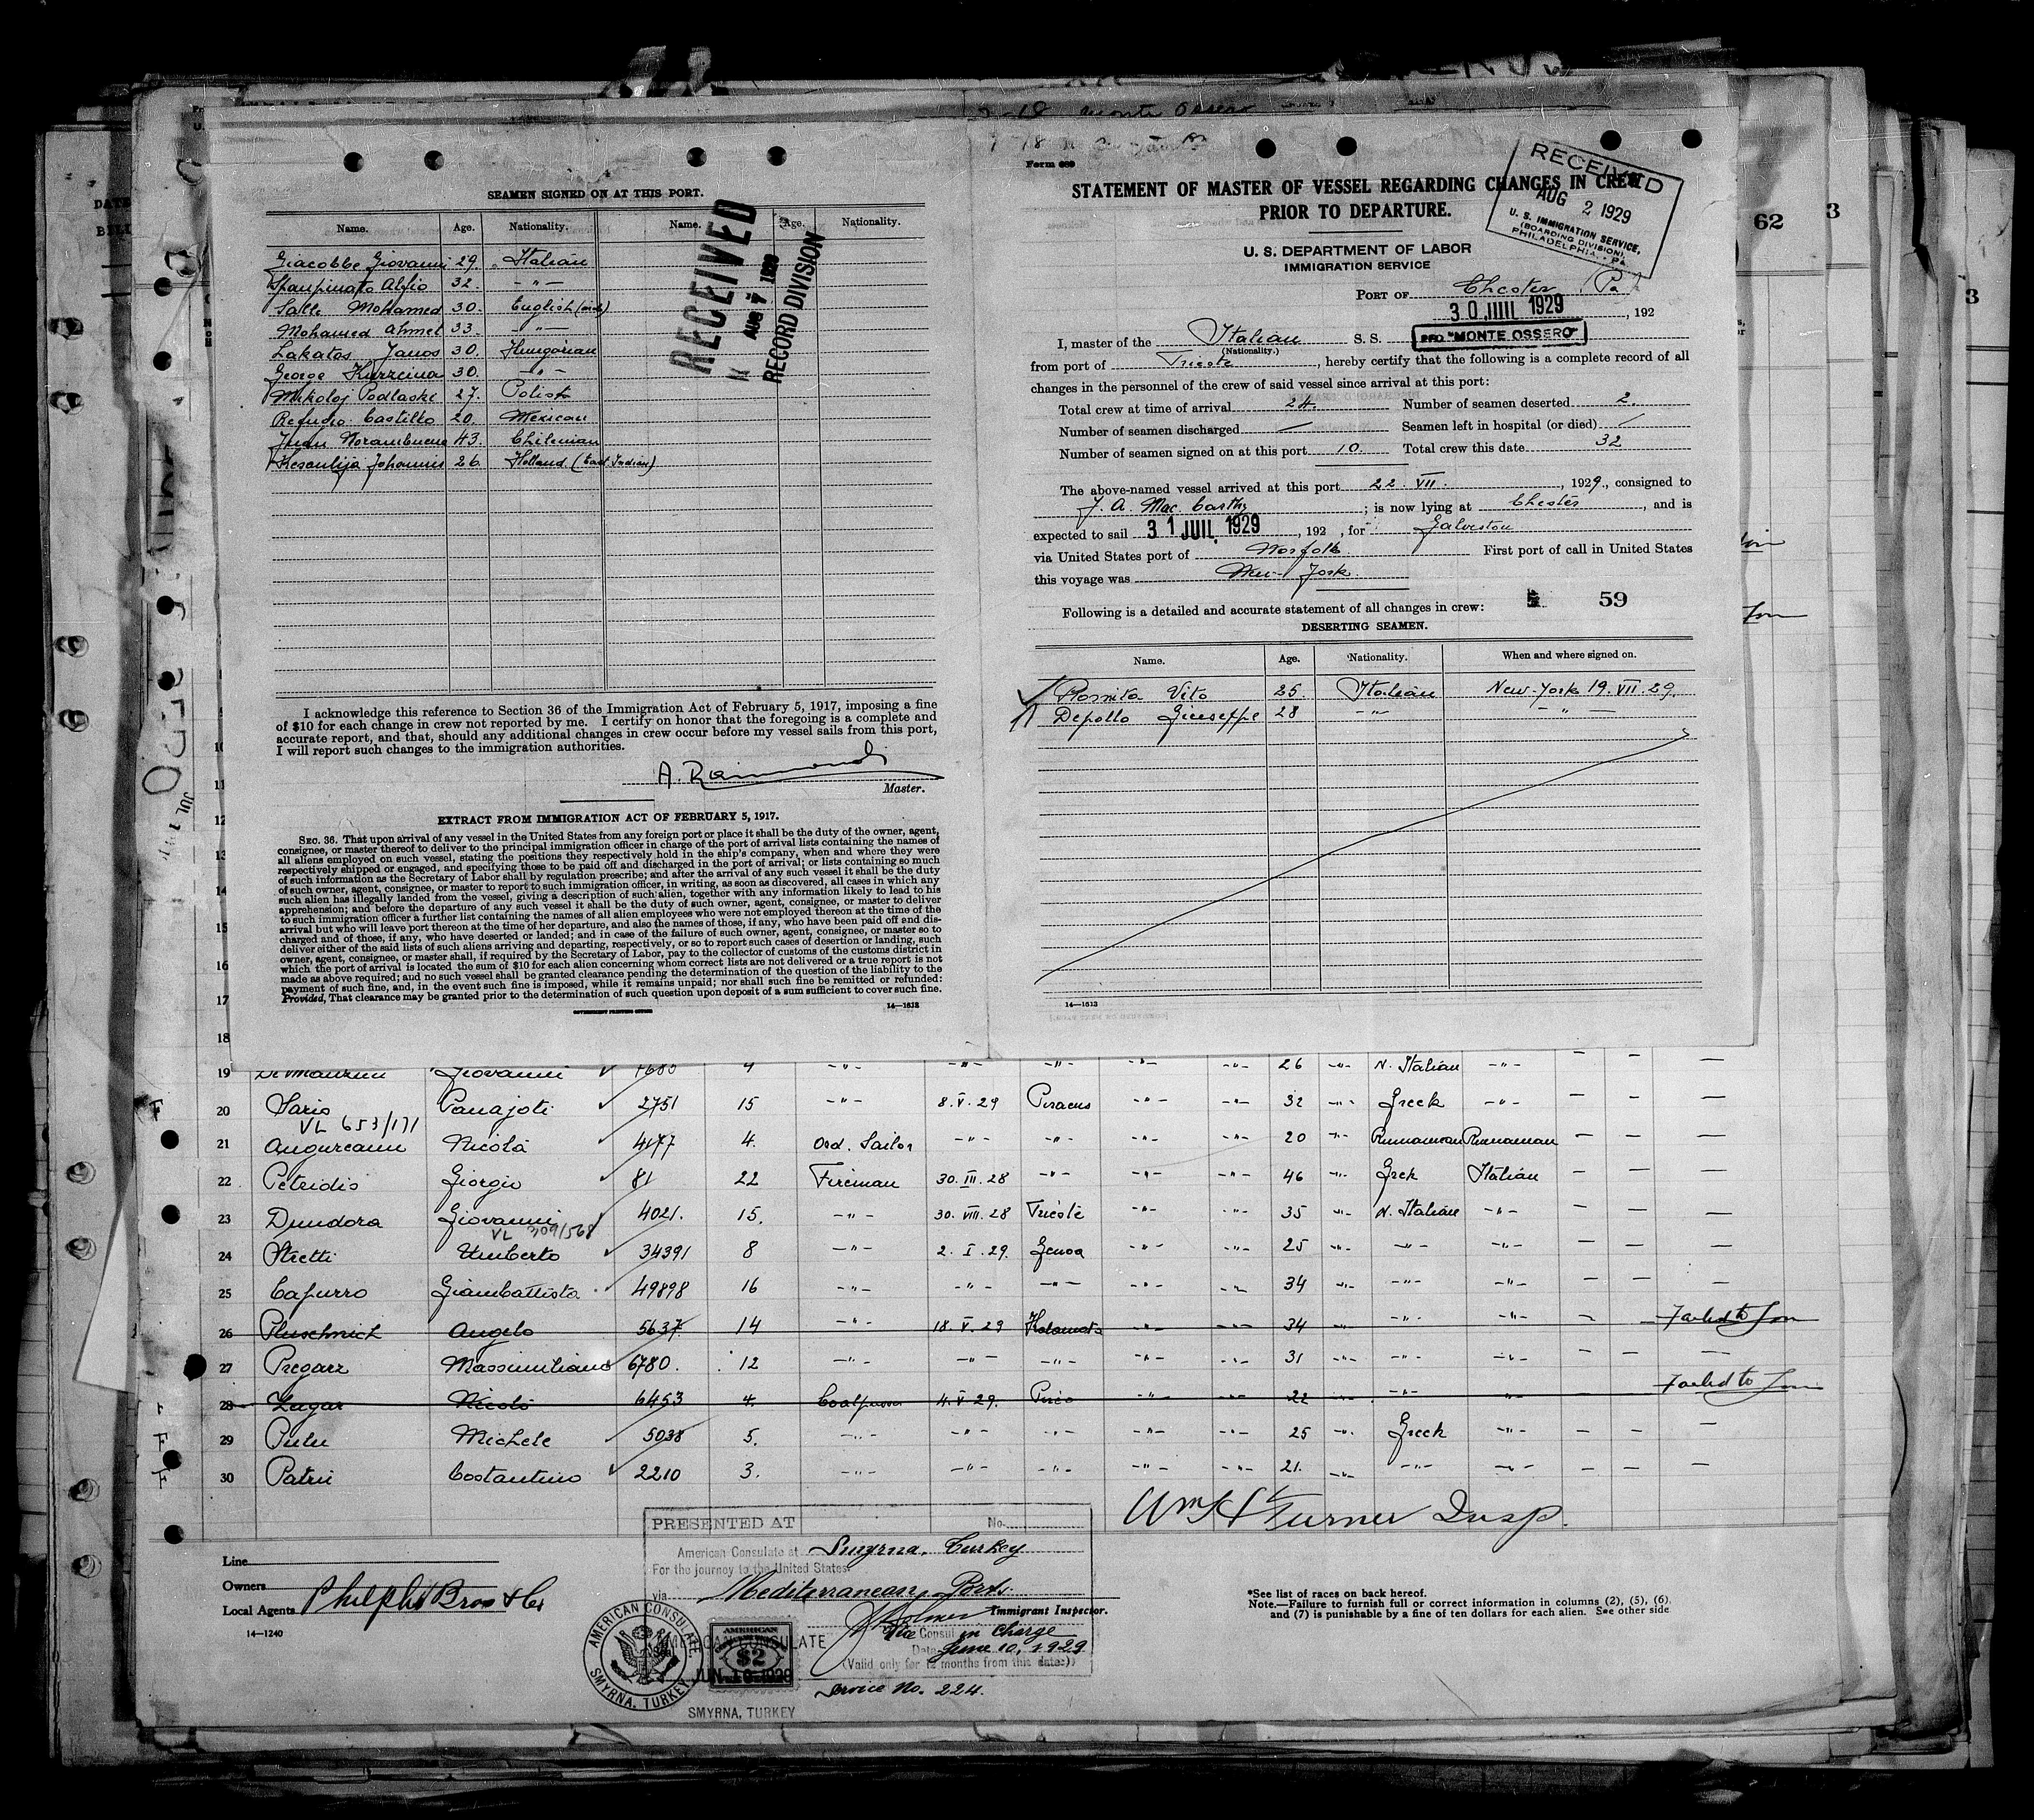 SEAMEN SIGNED ON AT THIS PORT.
Name. Age. Nationality. Name. Age. Nationality.
Giacobbe Giovanni 29. Italian
Spampinato Alfio 32. -"-
Salle Mohamed 30. English
Mohamed Ahmet 33. -"-
Lakatos Janos 30. Hungarian
George Kurzeina 30. -"-
Mikoloj Podlaski 27. Polish
Refudio Castillo 20. Mexican
Juan Norambuena 43. Chilenian
Kesaulija Johannis 26 Holland (East Indian)
RECEIVED
AUG 7 1929
RECORD DIVISION
I acknowledge this reference to Section 36 of the Immigration Act of February 5, 1917, imposing a fine
of $10 for each change in crew not reported by me. I certify on honor that the foregoing is a complete and
accurate report, and that, should any additional changes in crew occur before my vessel sails from this port,
I will report such changes to the immigration authorities.
A. Raimondi
Master.
EXTRACT FROM IMMIGRATION ACT OF FEBRUARY 5, 1917.
SEC. 36. That upon arrival of any vessel in the United States from any foreign port or place it shall be the duty of the owner, agent,
consignee, or master thereof to deliver to the principal immigration officer in charge of the port of arrival lists containing the names of
all aliens employed on such vessel, stating the positions they respectively hold in the ship's company, when and where they were
respectively shipped or engaged, and specifying those to be paid off and discharged in the port of arrival; or lists containing so much
of such information as the Secretary of Labor shall by regulation prescribe; and after the arrival of any such vessel it shall be the duty
of such owner, agent, consignee, or master to report to such immigration officer, in writing, as soon as discovered, all cases in which any
such alien has illegally landed from the vessel, giving a description of such alien, together with any information likely to lead to his
apprehension; and before the departure of any such vessel it shall be the duty of such owner, agent, consignee, or master to deliver
to such immigration officer a further list containing the names of all alien employees who were not employed thereon at the time of the
arrival but who will leave port thereon at the time of her departure, and also the names of those, if any, who have been paid off and dis-
charged and of those, if any, who have deserted or landed; and in case of the failure of such owner, agent, consignee, or master so to
deliver either of the said lists of such aliens arriving and departing, respectively, or so to report such cases of desertion or landing, such
owner, agent, consignee, or master shall, if required by the Secretary of Labor, pay to the collector of customs of the customs district in
which the port of arrival is located the sum of $10 for each alien concerning whom correct lists are not delivered or a true report is not
made as above required; and no such vessel shall be granted clearance pending the determination of the question of the liability to the
payment of such fine, and, in the event such fine is imposed, while it remains unpaid; nor shall such fine be remitted or refunded:
Provided, That clearance may be granted prior to the determination of such question upon deposit of a sum sufficient to cover such fine.
14—1512
GOVERNMENT PRINTING OFFICE
Monte Ossero
Form 689
STATEMENT OF MASTER OF VESSEL REGARDING CHANGES IN CREW
PRIOR TO DEPARTURE.
RECEIVED
AUG 2 1929
U. S. IMMIGRATION SERVICE,
(BOARDING DIVISION)
PHILADELPHIA, PA.
62
3
3
U. S. DEPARTMENT OF LABOR
IMMIGRATION SERVICE
PORT OF Chester Pa
30 JUIL 1929, 192
I, master of the Italian S. S. "MONTE OSSERO"
(Nationality.)
from port of Trieste, hereby certify that the following is a complete record of all
changes in the personnel of the crew of said vessel since arrival at this port:
Total crew at time of arrival 24. Number of seamen deserted 2.
Number of seamen discharged — Seamen left in hospital (or died) /
Number of seamen signed on at this port 10. Total crew this date 32
The above-named vessel arrived at this port 22. VII., 1929., consigned to
J. A. Mac Carthy; is now lying at Chester, and is
expected to sail 31 JUIL. 1929, 192 , for Galveston
via United States port of Norfolk First port of call in United States
this voyage was New-York
Following is a detailed and accurate statement of all changes in crew: 59
DESERTING SEAMEN.
Name. Age. Nationality. When and where signed on.
Rosnita Vito 25. Italian New-York 19. VII. 29.
Depollo Giuseppe 28 -"- -"-
14—1512
10
11
12
13
14
15
16
17
18
19 Giovanni 4 -"- -"- -"- -"- -"- 26 -"- N. Italian -"- — — —
F 20 Sario Panajoti 2751 15 -"- 8. V. 29 Piraeus -"- -"- 32 -"- Greek -"- — — —
VL 653/171
21 Angureanu Nicola 4177 4. Ord. Sailor -"- -"- -"- -"- 20 -"- Rumanean Rumanian — — —
22 Petridis Giorgio 81 22 Fireman 30. III. 28 -"- -"- -"- 46 -"- Grek Italian — — —
23 Dundora Giovanni 4021. 15. -"- 30. VIII. 28 Trieste -"- -"- 35 -"- N. Italian -"- — — —
VL 309/568
24 Stretti Umberto 34391 8 -"- 2. I. 29. Genoa -"- -"- 25 -"- -"- -"- — — —
25 Capurro Giambattista 49898 16 -"- -"- -"- -"- -"- 34 -"- -"- -"- — — —
26 Pluschnich Angelo 5637 14 -"- 18. V. 29 Kalamata -"- -"- 34 -"- -"- -"- — — Failed to Join
27 Pregarz Massimiliano 6780. 12 -"- -"- -"- -"- -"- 31 -"- -"- -"- — — —
28 Zugar Nicolò 6453 4. Coalpasser 4. V. 29. -"- -"- 22 -"- -"- — Failed to Join
F 29 Pulu Michele 5038 5. -"- -"- -"- -"- -"- 25 -"- Greek -"- — — —
F 30 Patrii Costantino 2210 3. -"- -"- -"- -"- -"- 21. -"- -"- -"- — — —
Wm H Turner Insp.
Line
Owners
Local Agents Philphs Bros & Co
14—1240
PRESENTED AT No.
American Consulate at Smyrna, Turkey
For the journey to the United States
via Mediterranean Ports.
Immigrant Inspector.
Vice Consul in Charge
Date June 10, 1929
(Valid only for 12 months from this date.)
Service No. 224.
AMERICAN CONSULATE
SMYRNA, TURKEY
AMERICAN CONSULATE
AMERICAN
$2
JUN 10 1929
SMYRNA, TURKEY
*See list of races on back hereof.
Note.—Failure to furnish full or correct information in columns (2), (5), (6).
and (7) is punishable by a fine of ten dollars for each alien. See other side